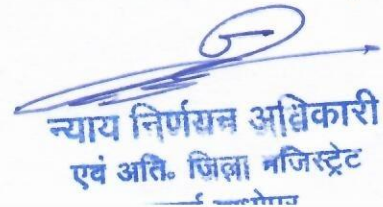 न्याय निर्णयन अधिकारी
एवं अति. जिला मजिस्ट्रेट